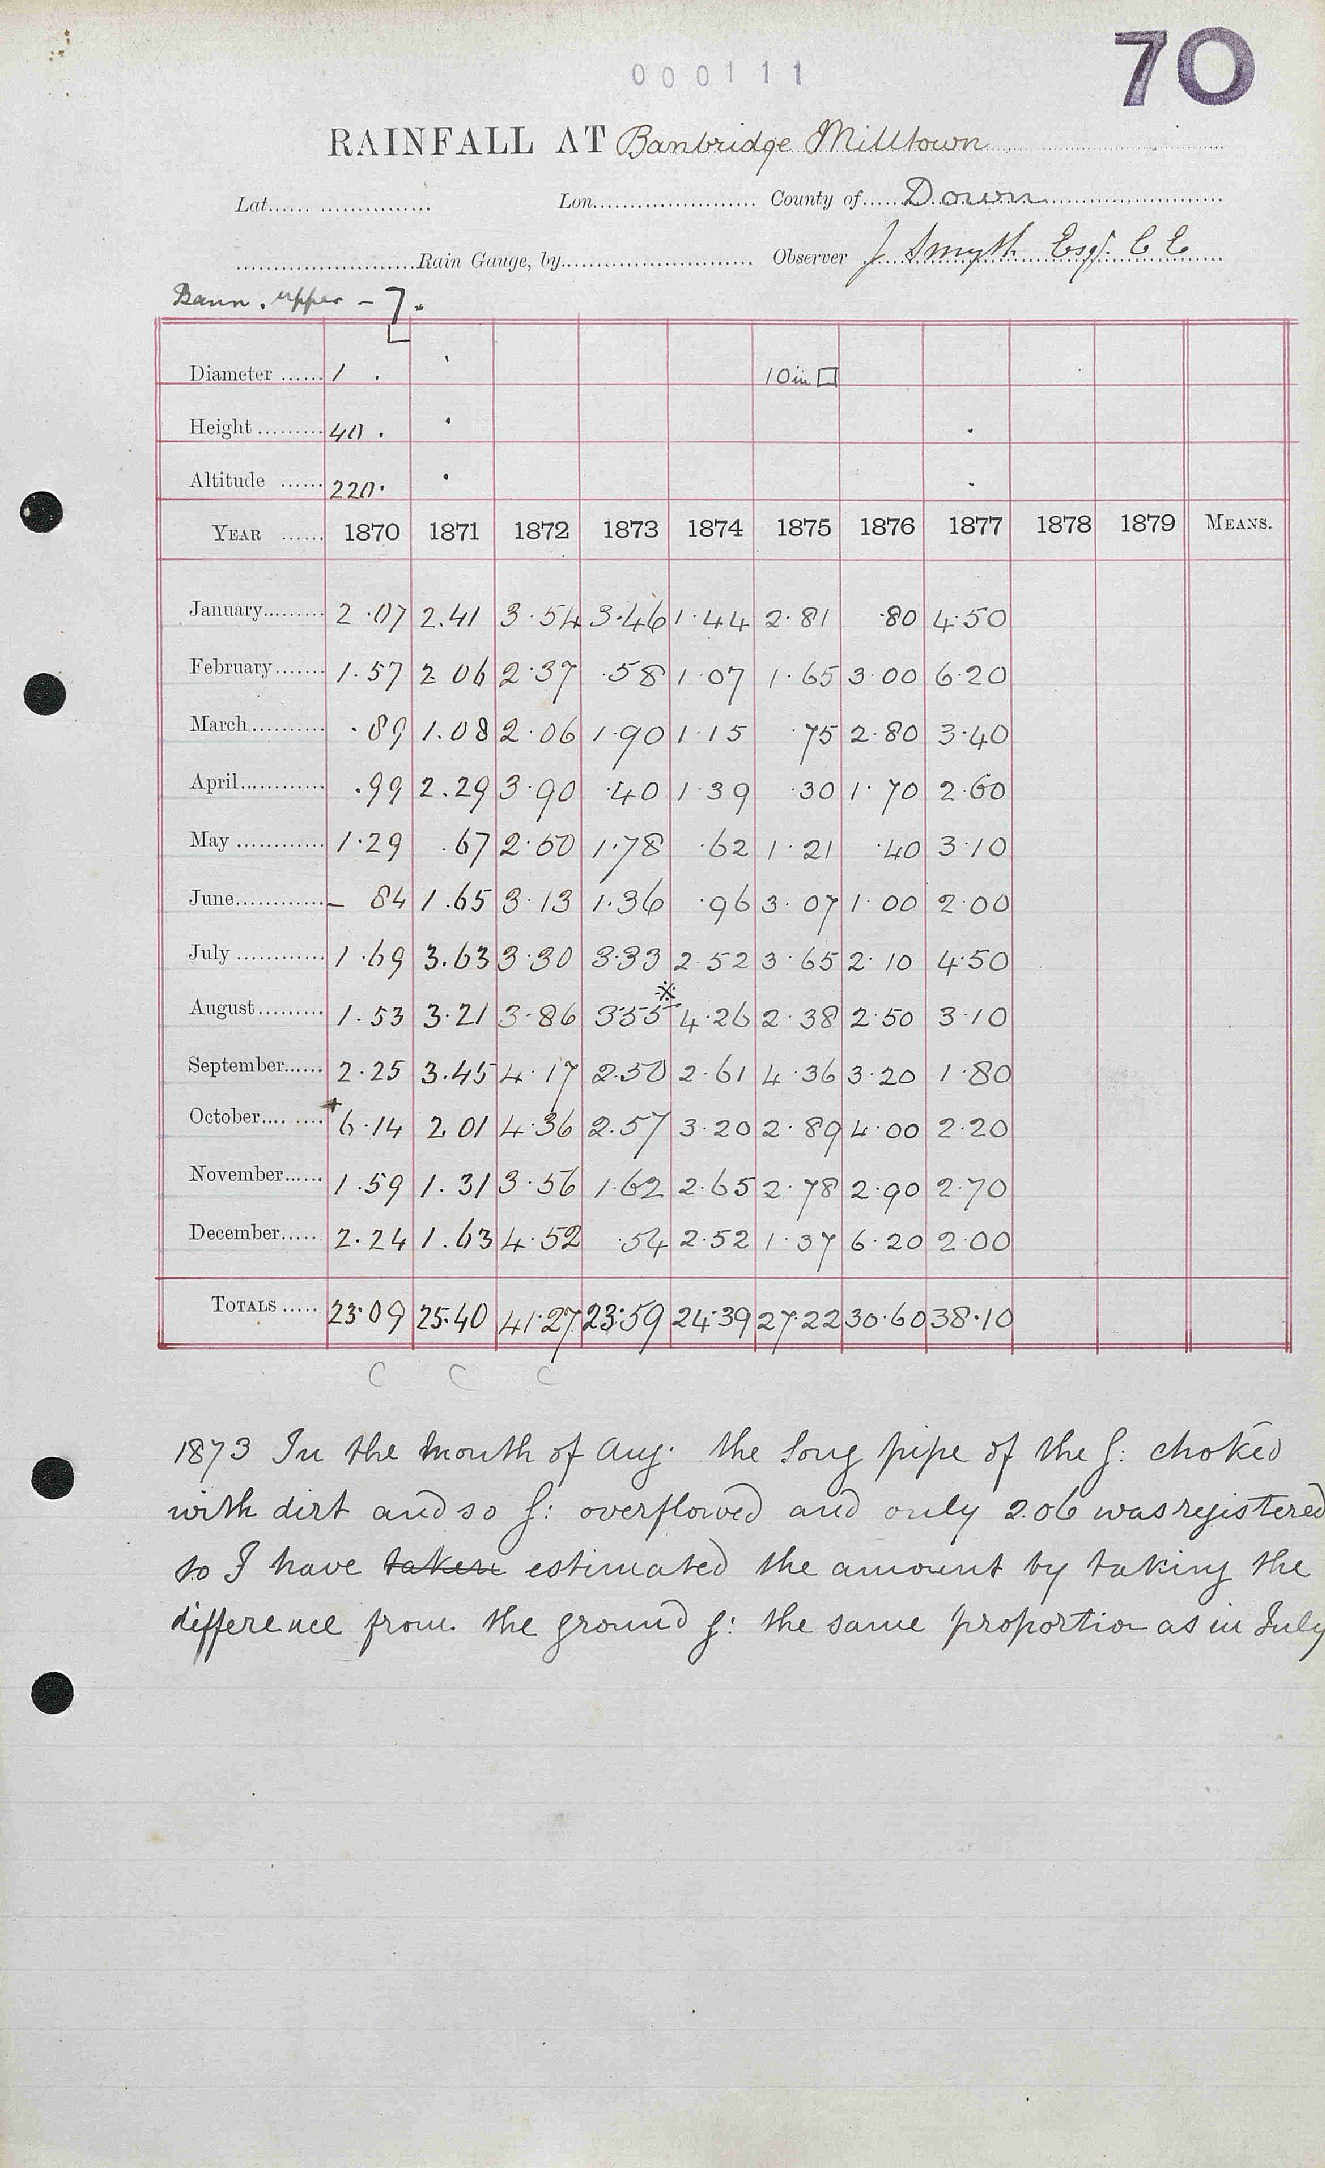 70
000111
RAINFALL AT Banbridge Milltown
Lat. Lon. County of Down
Rain Gauge, by Observer J Smyth Esqr. C E
Bann. upper - 7.
Diameter 1 . 10in □
Height 40 .
Altitude 220.
YEAR 1870 1871 1872 1873 1874 1875 1876 1877 1878 1879 MEANS.
January 2.07 2.41 3.54 3.46 1.44 2.81 .80 4.50
February 1.57 2 06 2.37 .58 1.07 1.65 3.00 6.20
March .89 1.08 2.06 1.90 1.15 .75 2.80 3.40
April .99 2.29 3.90 .40 1.39 .30 1.70 2.60
May 1.29 .67 2.50 1.78 .62 1.21 .40 3.10
June - 84 1.65 3.13 1.36 .96 3.07 1.00 2.00
July 1.69 3.63 3.30 3.33 2.52 3.65 2.10 4.50
August 1.53 3.21 3.86 355※ 4.26 2.38 2.50 3.10
September 2.25 3.45 4.17 2.50 2.61 4.36 3.20 1.80
October +6.14 2 01 4.36 2.57 3.20 2.89 4.00 2.20
November 1.59 1.31 3.56 1.62 2.65 2.78 2.90 2.70
December 2.24 1.63 4.52 .54 2.52 1.37 6.20 2.00
TOTALS 23.09 25.40 41.27 23.59 24.39 27.22 30.60 38.10
C C C
1873 In the month of Aug. the long pipe of the g: choked
with dirt and so g: overflowed and only 2.06 was registered
so I have taken estimated the amount by taking the
difference from the ground g: the same proportion as in July